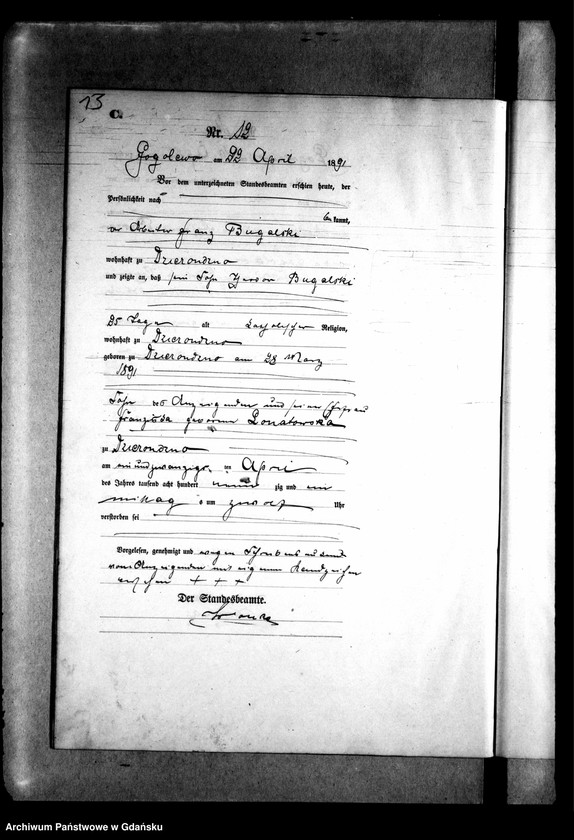 13
C.
Nr. 12
Gogolewo am 22 April 1891
Vor dem unterzeichneten Standesbeamten erschien heute, der
Persönlichkeit nach
bekannt,
der Arbeiter Franz Bugalski
wohnhaft zu Dzierondzno
und zeigte an, daß sein Sohn Bugalski
25 Tage alt katholischer Religion,
wohnhaft zu Dzierondzno
geboren zu Dzierondzno am 28 März
1891
Sohn des Anzeigenden und seiner Ehefrau
Franziska geborene Donatowska
zu Dzierondzno
am ein und zwanzigst ten April
des Jahres tausend acht hundert neun zig und ein
mittag s um zwoelf Uhr
verstorben sei
Vorgelesen, genehmigt und wegen
vom Anzeigenden mit eigenem Handzeichen
versehen + + +
Der Standesbeamte.
Archiwum Państwowe w Gdańsku